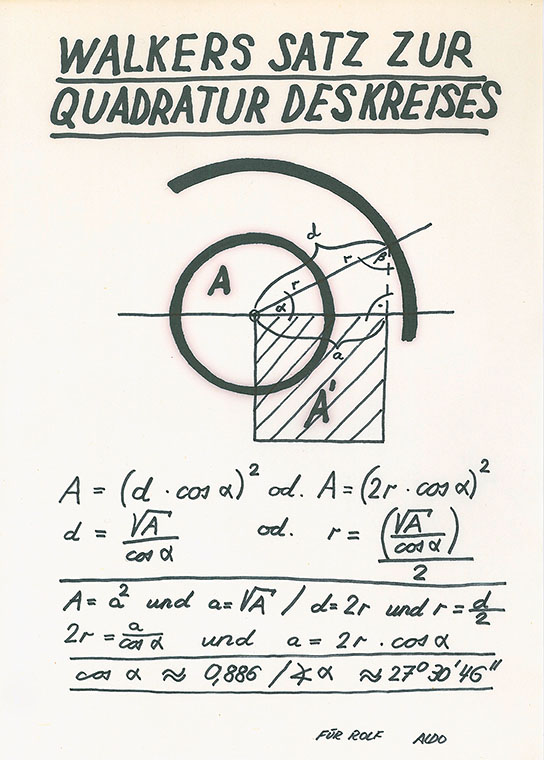 WALKERS SATZ ZUR
QUADRATUR DES KREISES
d
r
β
A
r
α
a
A'
A = (d · cos α)² od. A = (2r · cos α)²
d = √A / cos α od. r = (√A / cos α) / 2
A = a² und a = √A / d = 2r und r = d/2
2r = a / cos α und a = 2r · cos α
cos α ≈ 0,886 / ∢ α ≈ 27° 30' 46"
FÜR ROLF ALDO